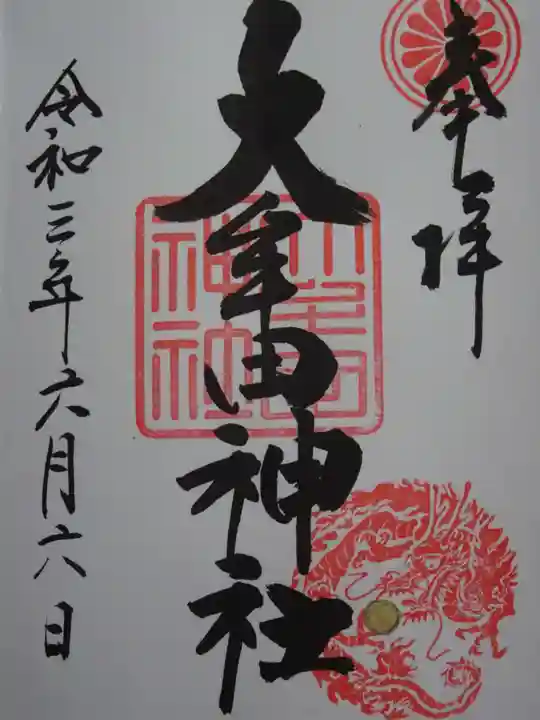 奉拝
大牟田神社
大牟田神社
令和三年六月六日